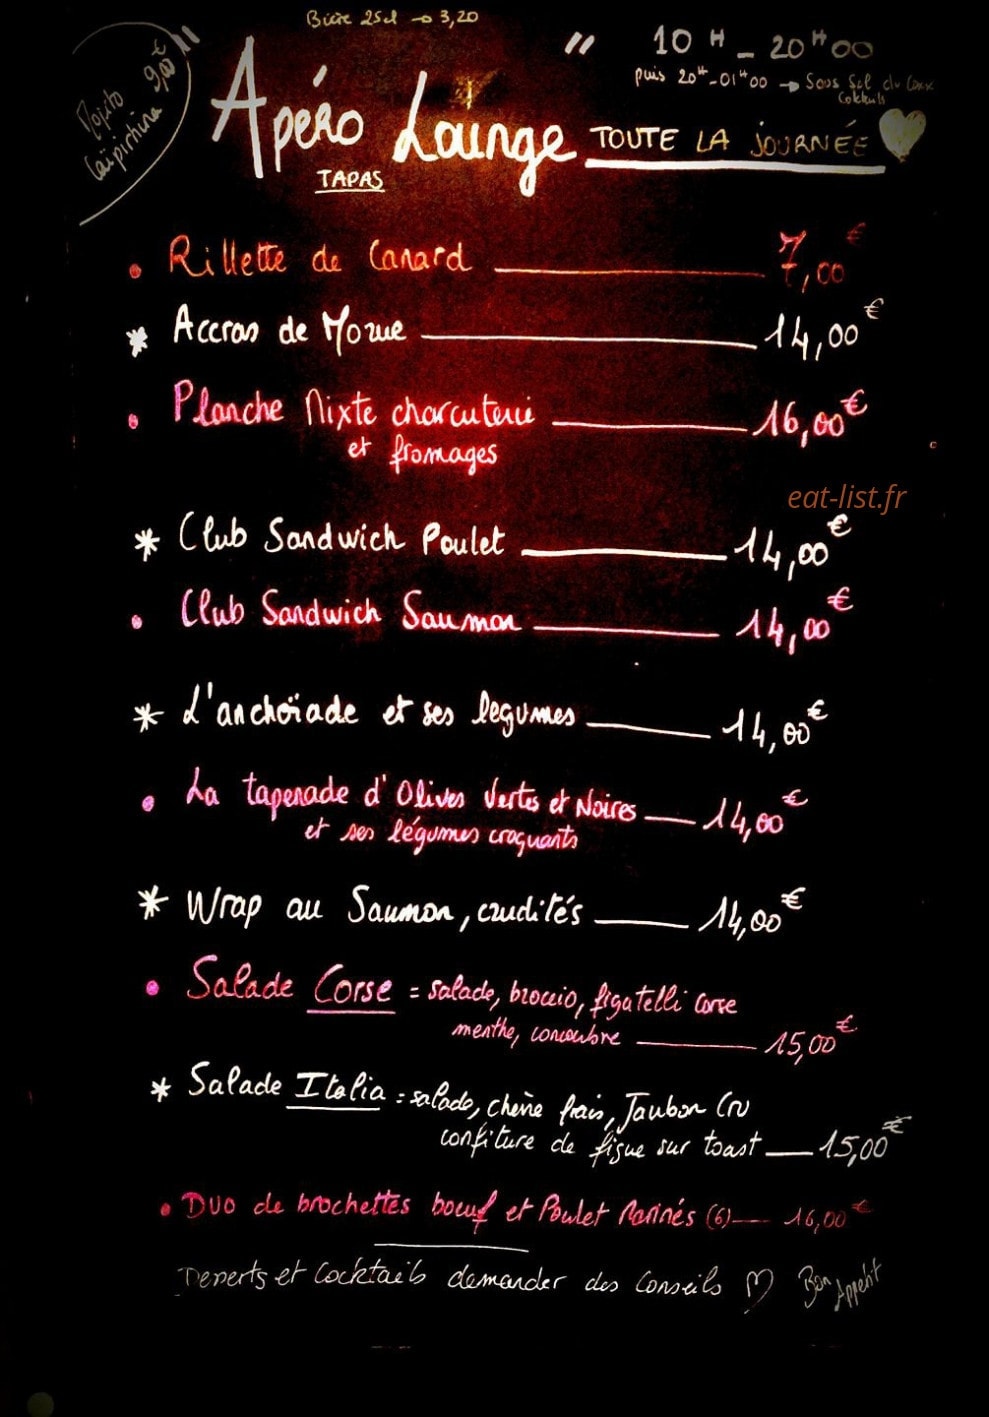 Bière 25cl → 3,20
Mojito
Caïpirhina 9,00€
" Apéro Lounge "
TAPAS
10H - 20H00
puis 20H-01H00 → Sous Sol
Coktails
TOUTE LA JOURNÉE
• Rillette de Canard 7,00€
* Accras de Morue 14,00€
• Planche Mixte charcuterie 16,00€
et fromages
eat-list.fr
* Club Sandwich Poulet 14,00€
• Club Sandwich Saumon 14,00€
* L'anchoïade et ses legumes 14,00€
• La tapenade d'Olives Vertes et Noires 14,00€
et ses légumes croquants
* Wrap au Saumon, crudités 14,00€
• Salade Corse = salade, broccio, figatelli corse
menthe, concombre 15,00€
* Salade Italia = salade, chèvre frais, Jambon Cru
confiture de figue sur toast 15,00€
• Duo de brochettes boeuf et Poulet Marinés (6) 16,00€
Desserts et Cocktails demander des Conseils
Bon
Appétit